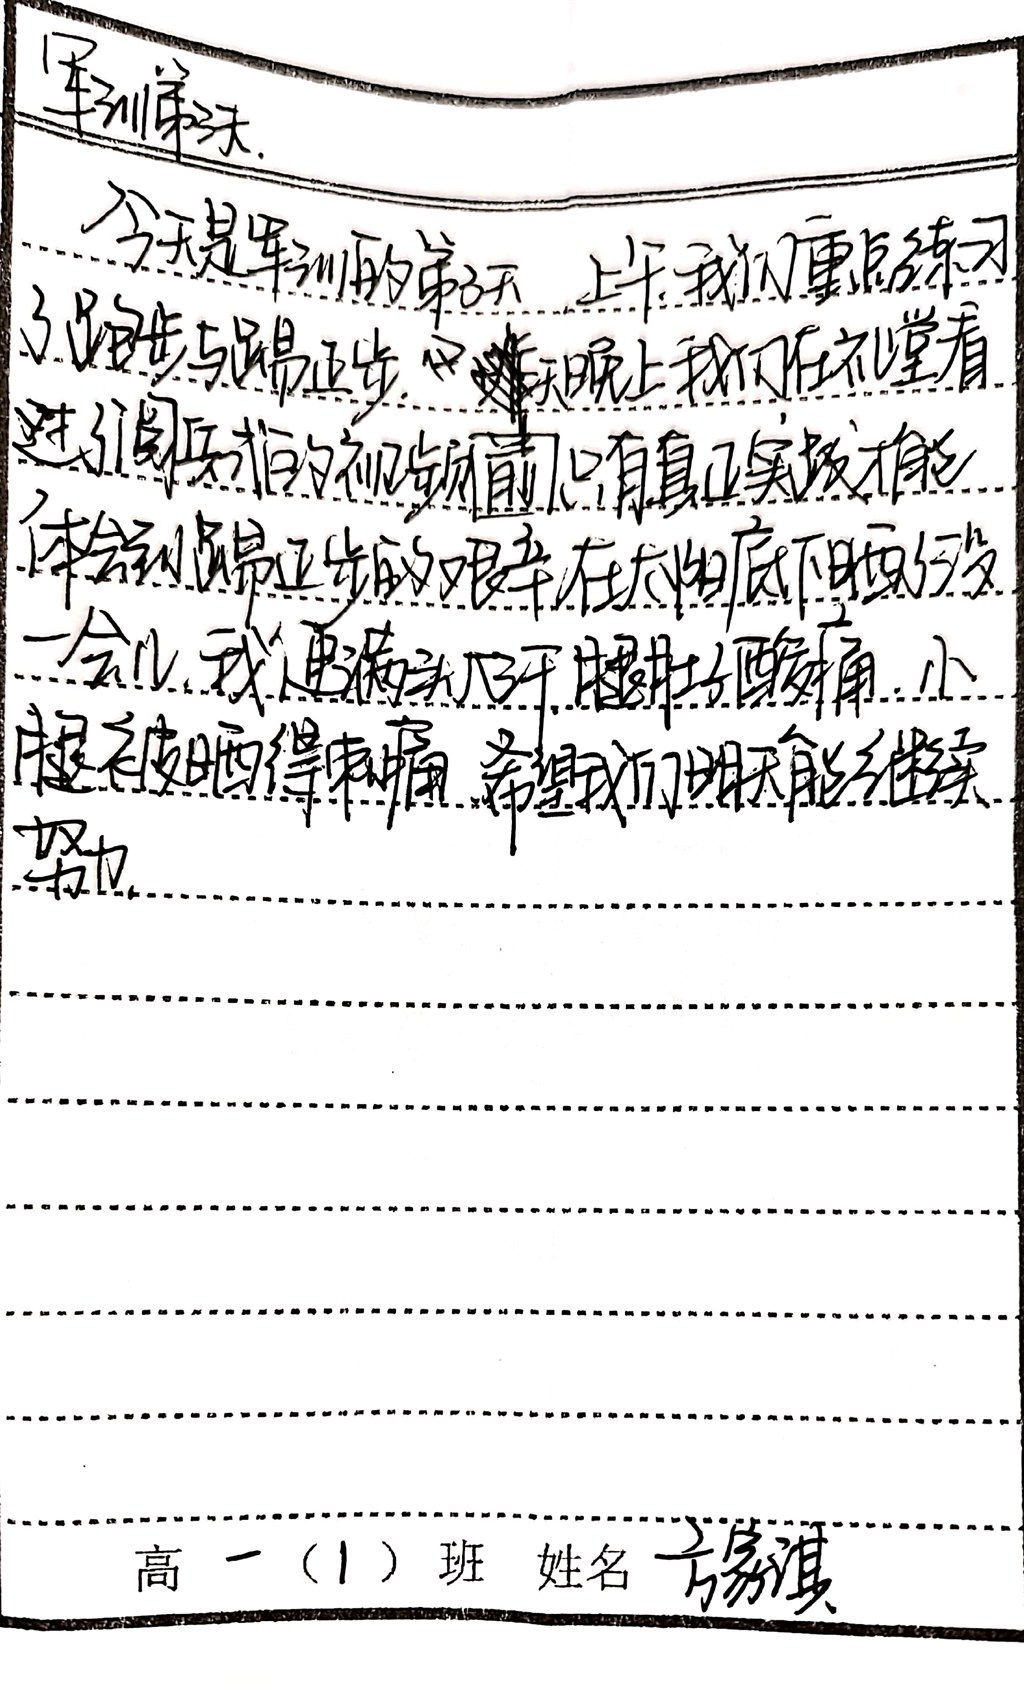 军训第3天.
今天是军训的第3天,上午,我们重点练习
了跑步与踢正步.天晚上我们在礼堂看
过了阅兵式的初步,只有真正实践才能
体会到踢正步的艰辛,在太阳底下晒了没
一会儿,我便满头大汗,腿肚子酸痛.小
腿被晒得刺痛.希望我们明天能继续
努力.
高一(1)班 姓名 方家淇